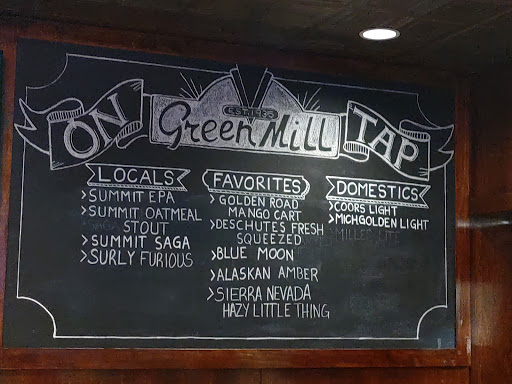 ON
EST. 1935
Green Mill
TAP
LOCALS
>SUMMIT EPA
>SUMMIT OATMEAL
STOUT
>SUMMIT SAGA
>SURLY FURIOUS
FAVORITES
>GOLDEN ROAD
MANGO CART
>DESCHUTES FRESH
SQUEEZED
>BLUE MOON
>ALASKAN AMBER
>SIERRA NEVADA
HAZY LITTLE THING
DOMESTICS
>COORS LIGHT
>MICHGOLDEN LIGHT
MILLER LITE